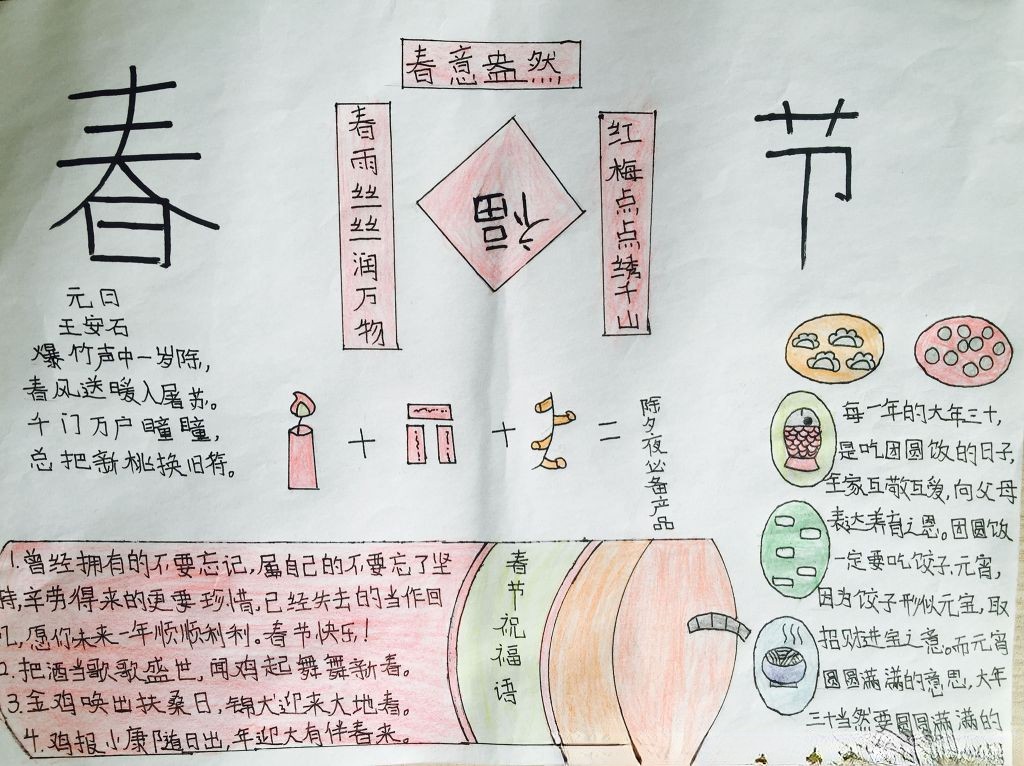 春节
春意盎然
春雨丝丝润万物
红梅点点绣千山
福
元日
王安石
爆竹声中一岁除，
春风送暖入屠苏。
千门万户曈曈，
总把新桃换旧符。
+ + =
除夕夜必备产品
每一年的大年三十，
是吃团圆饭的日子，
全家互敬互爱，向父母
表达养育之恩。团圆饭
一定要吃饺子，元宵，
因为饺子形似元宝，取
招财进宝之意。而元宵
圆圆满满的意思，大年
三十当然要圆圆满满的
1.曾经拥有的不要忘记，属自己的不要忘了坚
持，辛劳得来的更要珍惜，已经失去的当作回
忆，愿你未来一年顺顺利利。春节快乐！
2.把酒当歌歌盛世，闻鸡起舞舞新春。
3.金鸡唤出扶桑日，锦犬迎来大地春。
4.鸡报小康随日出，年迎大有伴春来。
春节祝福语